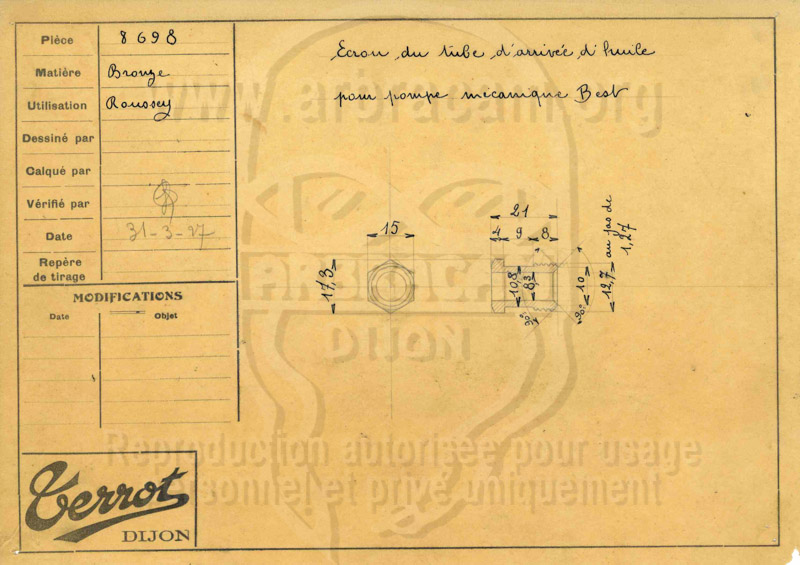 Pièce 8698
Matière Bronze
Utilisation Roussey
Dessiné par
Calqué par
Vérifié par
Date 31-3-27
Repère
de tirage
MODIFICATIONS
Date Objet
Terrot
DIJON
Ecrou du tube d'arrivée d'huile
pour pompe mécanique Best
15
17,3
21
4 9 8
10,8
8,3
10
12,7 au pas de
1,27
90°
www.arbracam.org
DIJON
Reproduction autorisée pour usage
personnel et privé uniquement